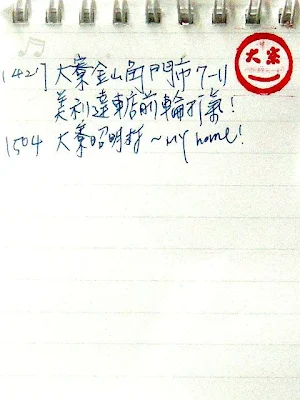 1427 大寮金山商門市 7-11
美利達車店前輪打氣!
1504 大寮昭明村~My home!
大寮